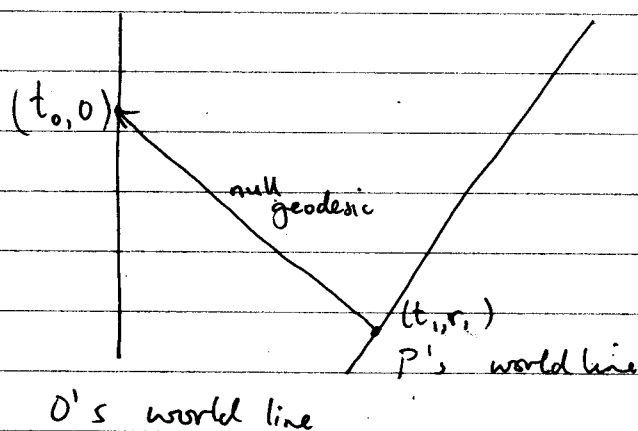 (t₀,0)
null
geodesic
(t₁,r₁)
P's world line
O's world line